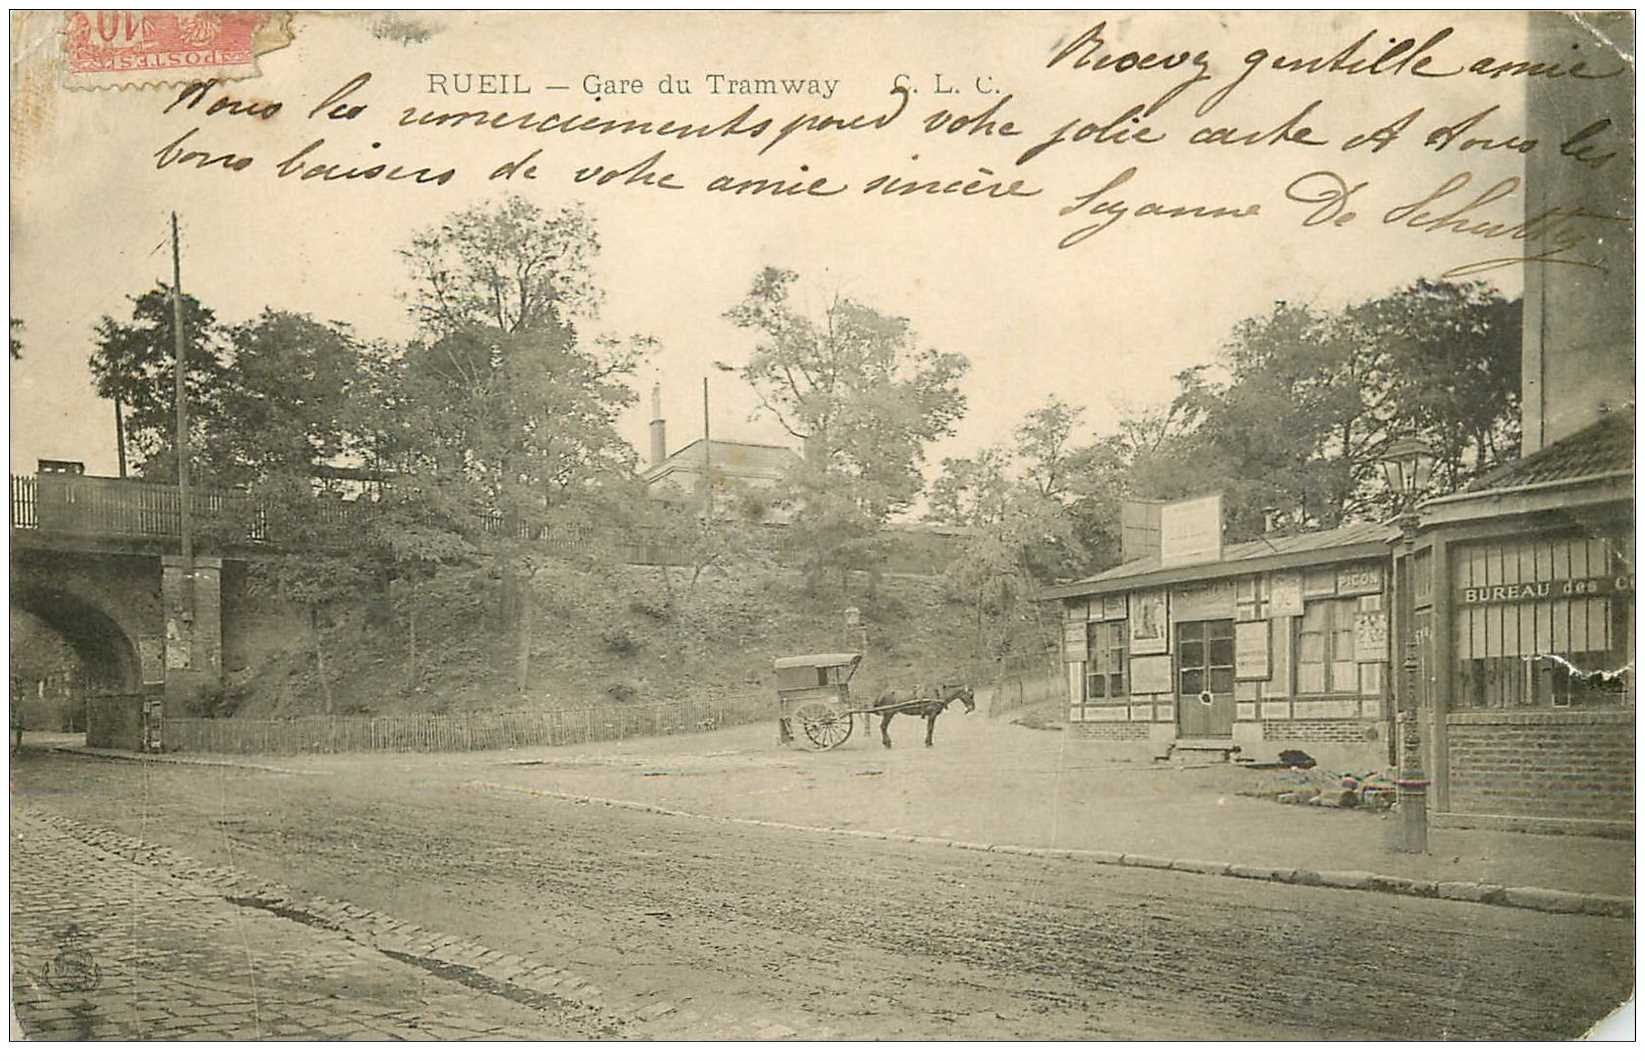 10
POSTES
RUEIL — Gare du Tramway C. L. C.
Recevez gentille amie
Tous les remerciements pour votre jolie carte et Tous les
bons baisers de votre amie sincère
Suzanne De Schutty
PICON
BUREAU des C